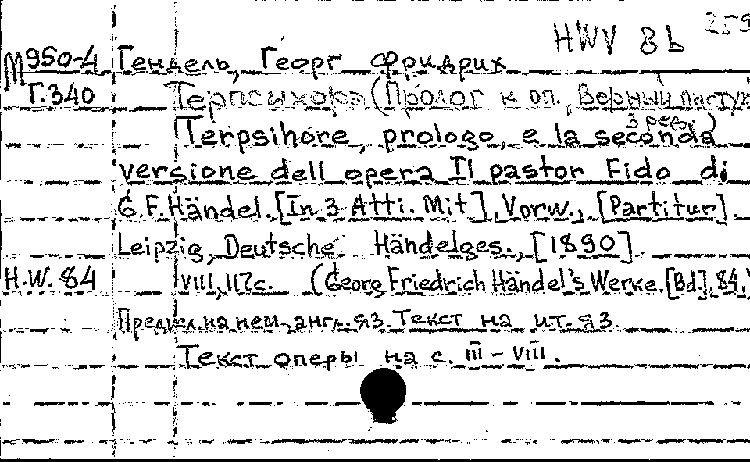 HWV 8b 259
М950-4 Гендель, Георг Фридрих
Т.340 Терпсихора (Пролог к оп. "Верный пастух"
3 ред.)
Terpsihore, prologo, e la seconda
versione dell opera Il pastor Fido di
G F. Händel. [In 3 Atti. Mit] Vorw., [Partitur]
Leipzig, Deutsche Händelges., [1890]
H.W. 84 VIII, 117c. (Georg Friedrich Händel's Werke. [Bd]. 84.)
Предисл. на нем., англ. яз. Текст на ит. яз.
Текст оперы на с. III - VIII.